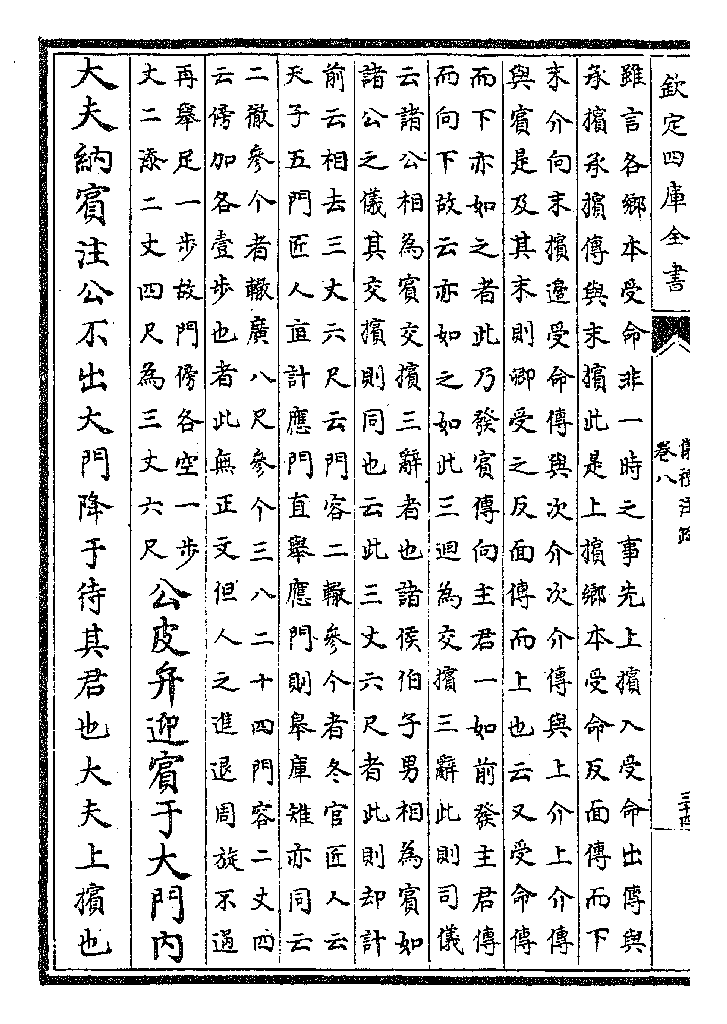 欽定四庫全書
儀禮注疏
卷八
三十四
雖言各鄉本受命非一時之事先上擯入受命出傳與
承擯承擯傳與末擯此是上擯鄉本受命反面傳而下
末介向末擯邊受命傳與次介次介傳與上介上介傳
與賓是及其末則卿受之反面傳而上也云又受命傳
而下亦如之者此乃發賓傳向主君一如前發主君傳
而向下故云亦如之如此三迴為交擯三辭此則司儀
云諸公相為賓交擯三辭者也諸侯伯子男相為賓如
諸公之儀其交擯則同也云此三丈六尺者此則却計
前云相去三丈六尺云門容二轍參个者冬官匠人云
天子五門匠人直計應門直舉應門則皋庫雉亦同云
二徹參个者轍廣八尺參个三八二十四門容二丈四
云傍加各壹步也者此無正文但人之進退周旋不過
再舉足一步故門傍各空一步
丈二添二丈四尺為三丈六尺
公皮弁迎賓于大門內
大夫納賓注公不出大門降于待其君也大夫上擯也